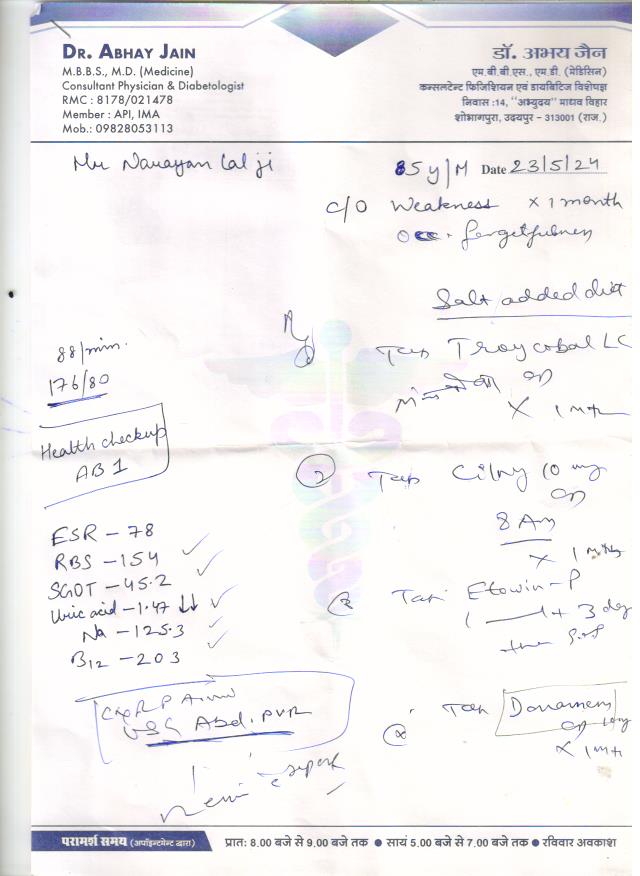 DR. ABHAY JAIN
M.B.B.S., M.D. (Medicine)
Consultant Physician & Diabetologist
RMC : 8178/021478
Member : API, IMA
Mob.: 09828053113
डॉ. अभय जैन
एम.बी.बी.एस., एम.डी. (मेडिसिन)
कन्सलटेन्ट फिजिशियन एवं डायबिटिज विशेषज्ञ
निवास :14, "अभ्युदय" माधव विहार
शोभागपुरा, उदयपुर - 313001 (राज.)
Mr Narayan Lal ji
85 y/M Date 23/5/24
C/O Weakness x 1 month
forgetfulness
Salt added diet
88/min.
176/80
Health checkup
AB 1
Tab Troycobal LC
x 1 mth
Tab Cilny 10 mg
8 Am
x 1 mth
ESR - 78
RBS - 154
SGOT - 45.2
Uric acid - 1.47 ↓↓
Na - 125.3
B12 - 203
Tab Etowin-P
3 day
USG Abd. PVR
Tab
x 1 mth
परामर्श समय (अपॉइन्टमेन्ट द्वारा)
प्रातः 8.00 बजे से 9.00 बजे तक ● सायं 5.00 बजे से 7.00 बजे तक ● रविवार अवकाश